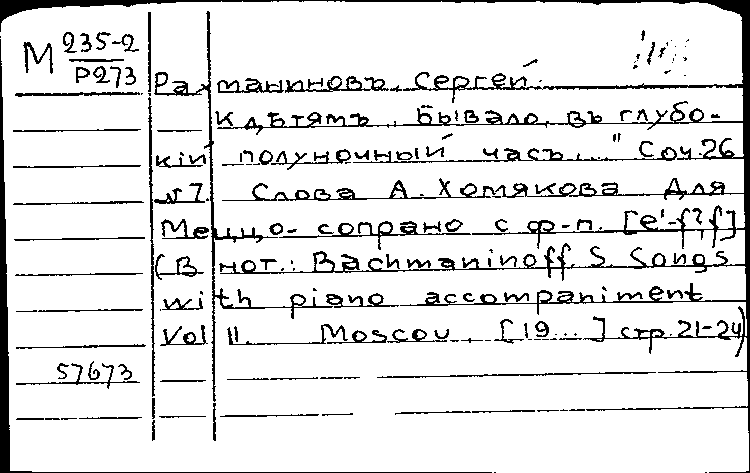 М 235-2
Р273
Рахманиновъ, Сергей.
К дѣтямъ „Бывало, въ глубо-
кій полуночный часъ..." Соч. 26
№7. Слова А. Хомякова Для
Меццо-сопрано с ф-п. [e'-f²,f]
(В нот.: Bachmaninoff. S. Songs
with piano accompaniment
Vol II. Moscou, [19...] стр. 21-24)
57673